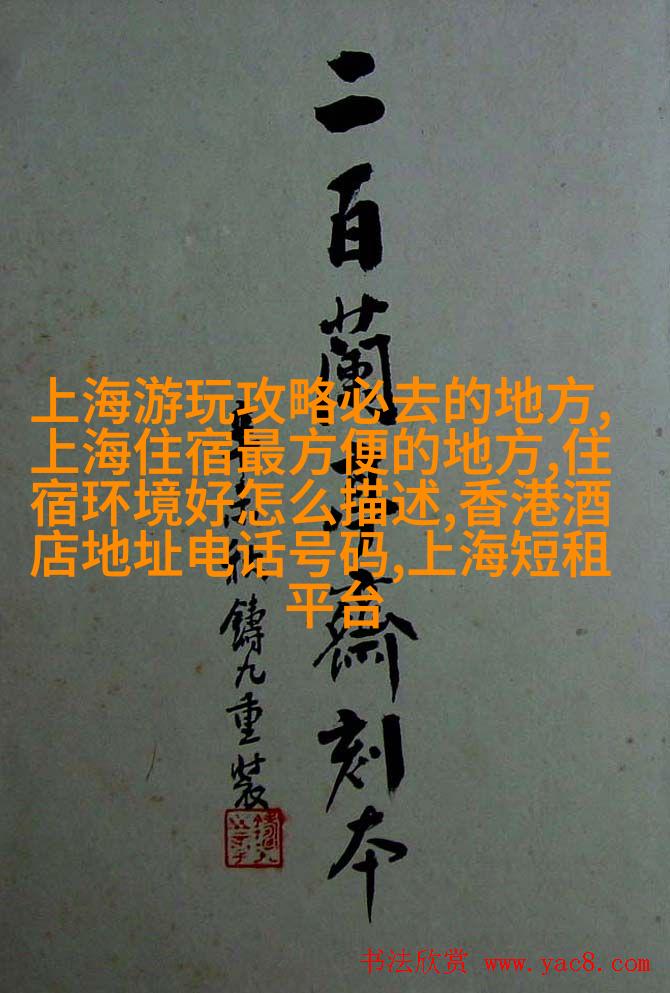 二百蘭亭齋刻本
鑄九重裝
上海游玩攻略必去的地方,
上海住宿最方便的地方,住
宿环境好怎么描述,香港酒
店地址电话号码,上海短租
平台
书法欣赏 www.yac8.com